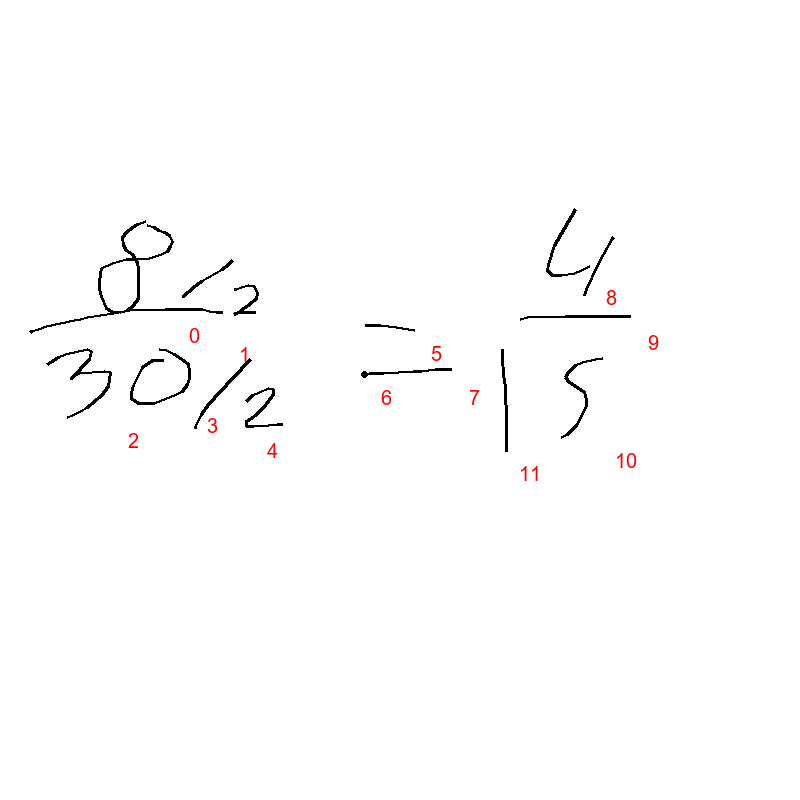 8/2
30/2
=
4
15
0
1
2
3
4
5
6
7
8
9
10
11